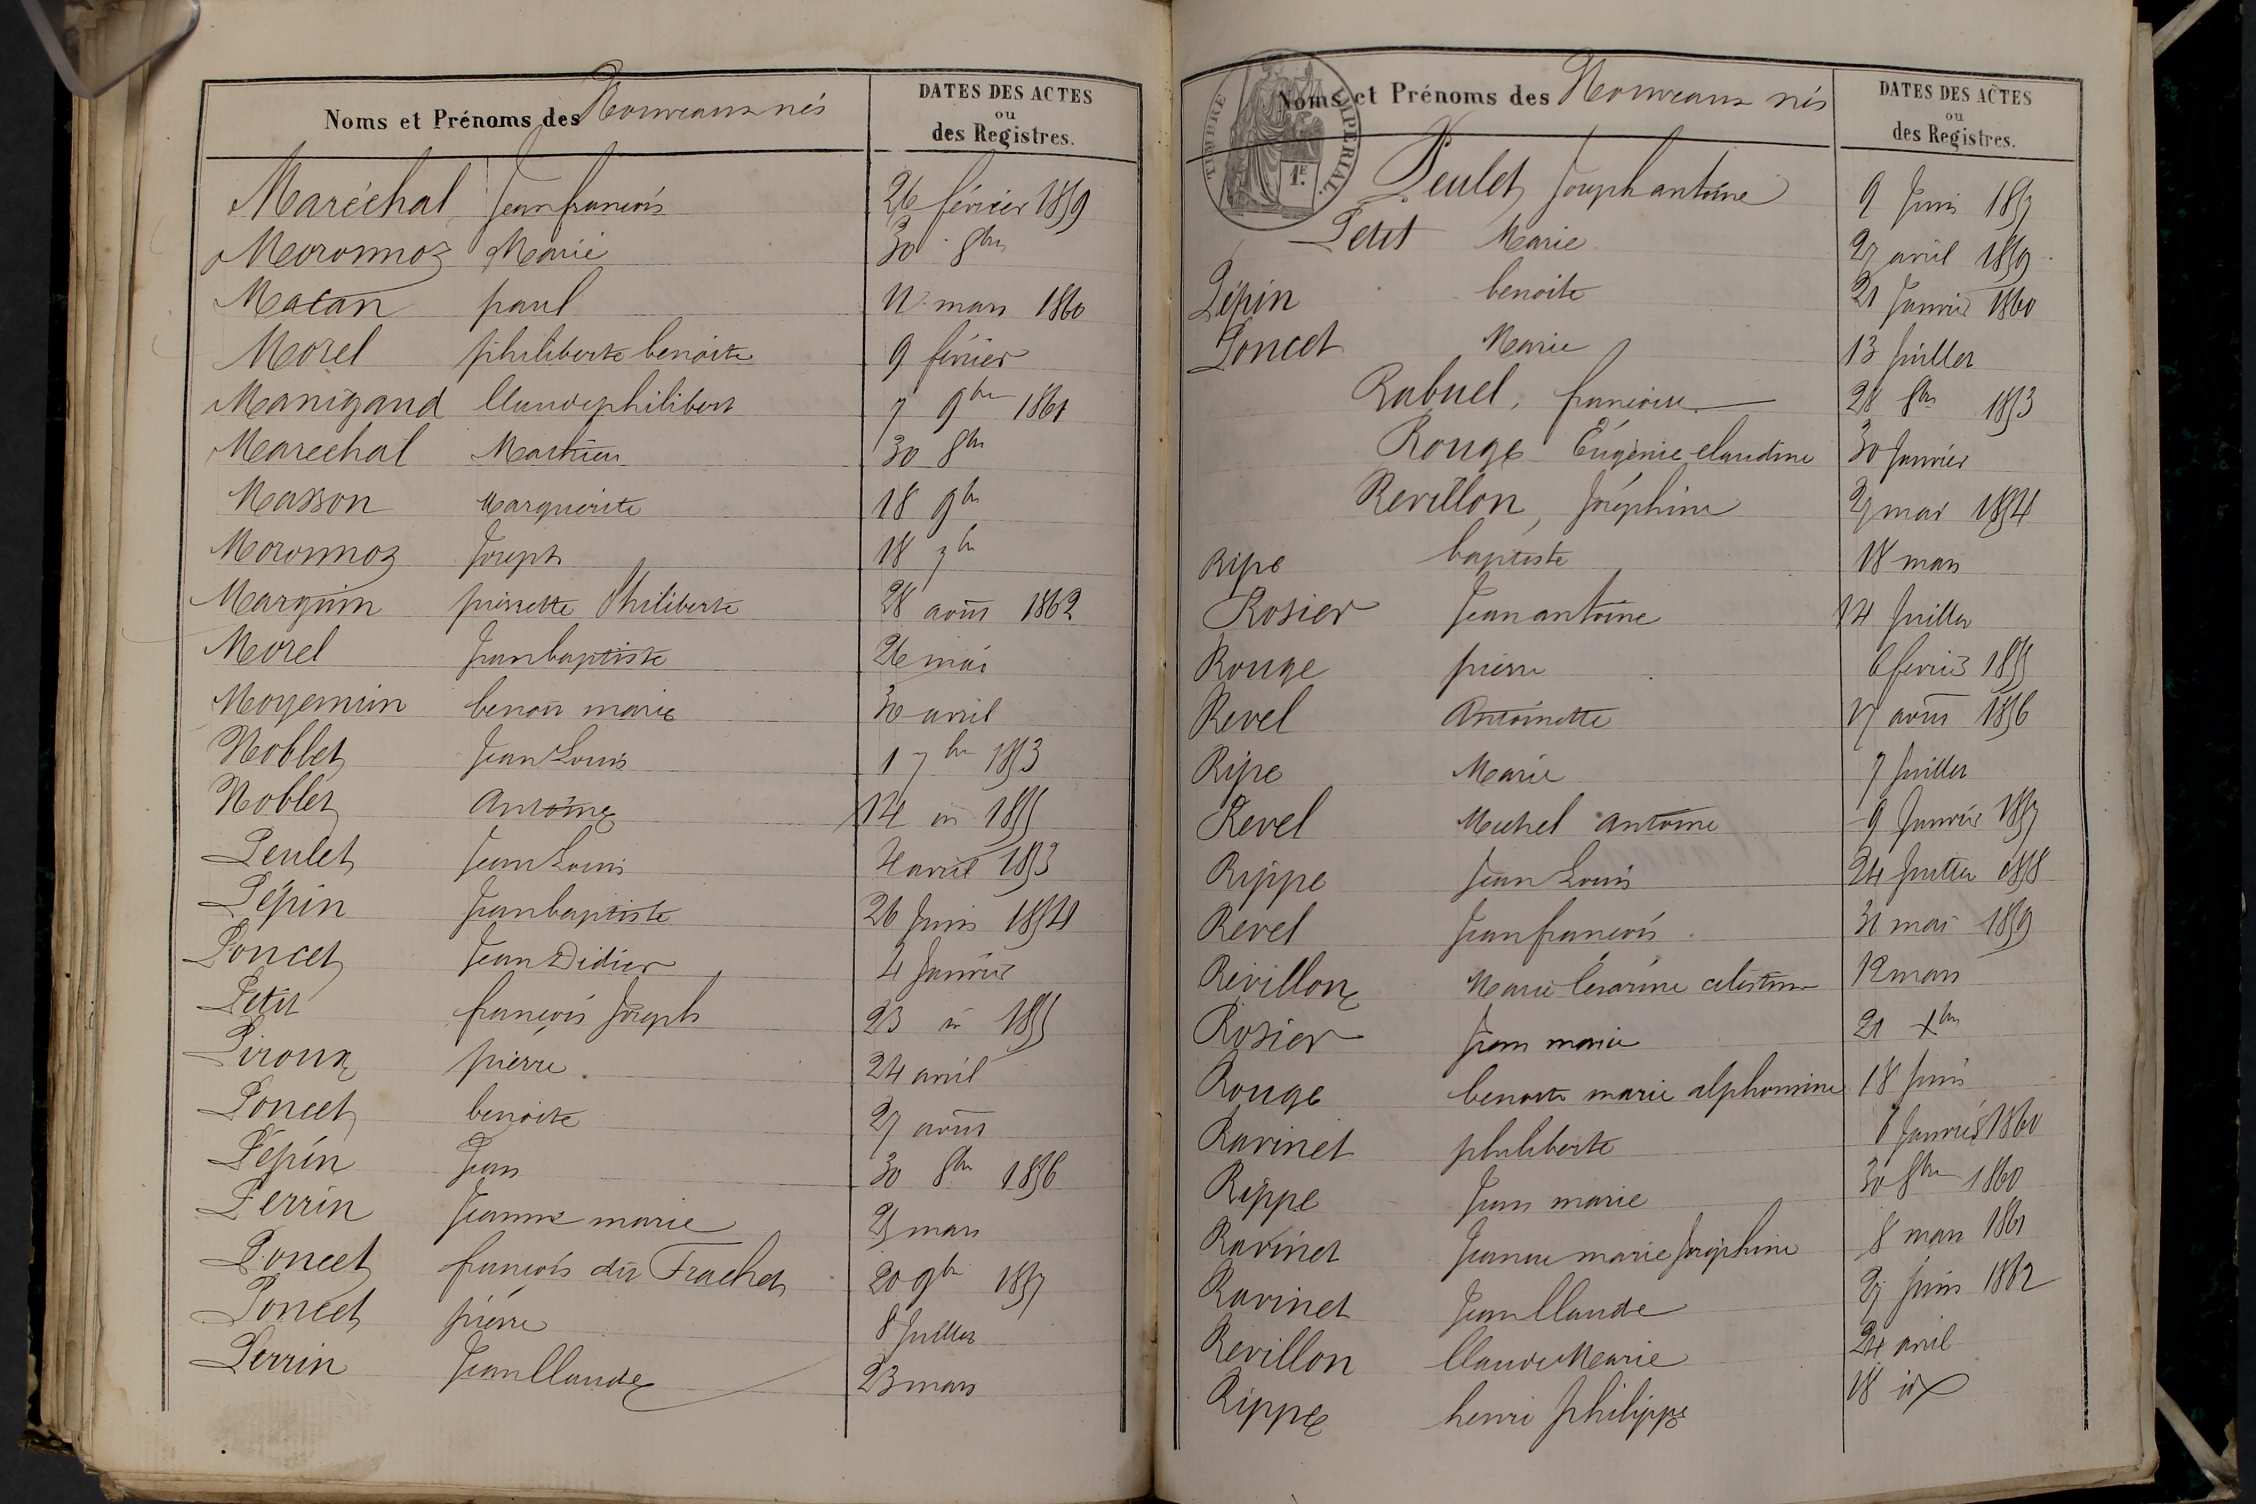 Noms et Prénoms des Nouveaux nés
DATES DES ACTES
ou
des Registres.
Maréchal Jean françois 26 février 1859
Moronnoz Marie 30 8bre
Matan paul 12 mars 1860
Morel philiberte benoite 9 février
Manigand Claude philibert 7 9bre 1861
Marechal Mathieu 30 8bre
Masson Marguerite 18 9bre
Moronnoz Joseph 18 7bre
Marguin pierrette Philiberte 28 août 1862
Morel Jean baptiste 26 mai
Moyemin benoit marie 30 avril
Noblet Jean Louis 1 7bre 1853
Noblet Antoine 14 id 1855
Peulet Jean Louis 4 avril 1853
Pépin Jean baptiste 26 Juin 1854
Poncet Jean Didier 4 Janvier
Petit françois Joseph 23 id 1855
Piroux pierre 24 avril
Poncet benoite 27 août
Pépin Jean 30 8bre 1856
Perrin Jeanne marie 29 mars
Poncet françois dit Frachet 20 9bre 1857
Poncet pierre 8 Juillet
Perrin Jean Claude 23 mars
TIMBRE IMPÉRIAL.
1F.
Noms et Prénoms des Nouveaux nés
DATES DES ACTES
ou
des Registres.
Peulet Joseph antoine 9 Juin 1857
Petit Marie 27 avril 1859
Pépin benoite 21 Janvier 1860
Poncet Marie 13 Juillet
Rabuel, françoise 28 8bre 1853
Rouge Eugénie claudine 30 Janvier
Revillon, Joséphine 29 mai 1854
Ripe baptiste 18 mars
Rosier Jean antoine 14 Juillet
Rouge pierre 6 février 1855
Revel Antoinette 17 août 1856
Ripe Marie 7 Juillet
Revel Michel antoine 9 Janvier 1857
Rippe Jean Louis 24 Juillet 1858
Revel Jean françois 31 mai 1859
Révillon Marie Césarine célestine 12 mars
Rosier Jean marie 21 Xbre
Rouge benoite marie alphonsine 18 Juin
Ravinet philiberte 8 Janvier 1860
Rippe Jean marie 30 8bre 1860
Ravinet Jeanne marie Joséphine 8 mars 1861
Ravinet Jean Claude 29 Juin 1862
Revillon Claude Marie 24 avril
Rippe henri philippe 18 id